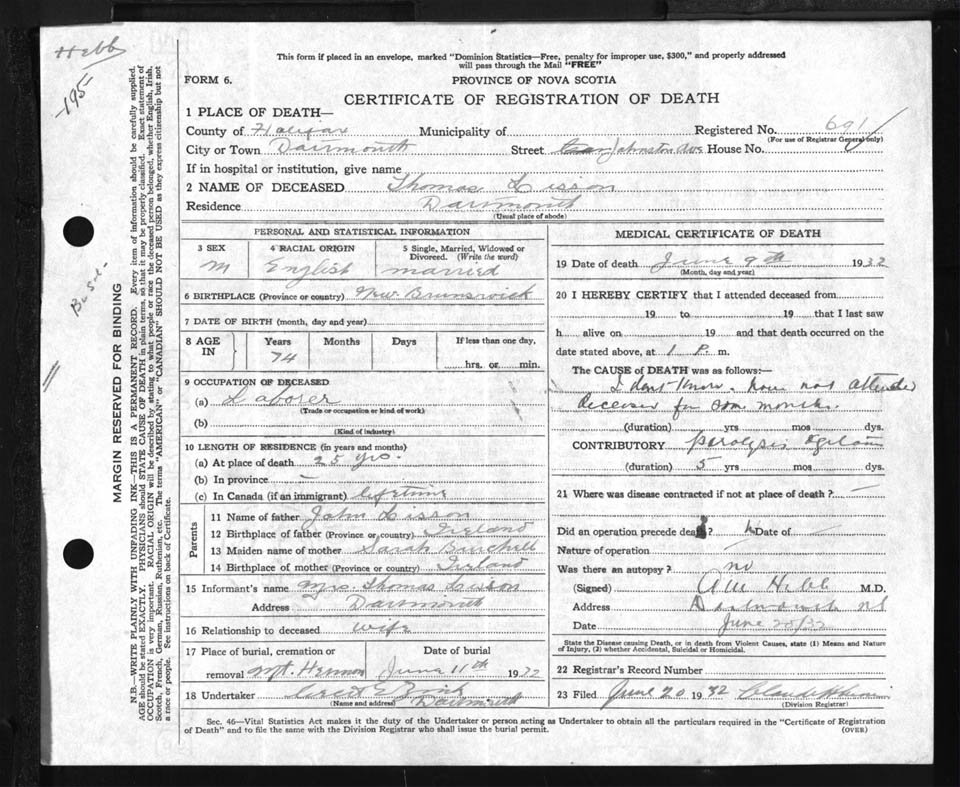 Hebb
195
This form if placed in an envelope, marked "Dominion Statistics—Free, penalty for improper use, $300," and properly addressed
will pass through the Mail "FREE"
FORM 6. PROVINCE OF NOVA SCOTIA
CERTIFICATE OF REGISTRATION OF DEATH
1 PLACE OF DEATH—
County of Halifax Municipality of Registered No. 691
(For use of Registrar General only)
City or Town Dartmouth Street Johnston Ave House No.
If in hospital or institution, give name
2 NAME OF DECEASED Thomas Lisson
Residence Dartmouth
(Usual place of abode)
PERSONAL AND STATISTICAL INFORMATION
3 SEX 4 RACIAL ORIGIN 5 Single, Married, Widowed or
Divorced. (Write the word)
M English married
6 BIRTHPLACE (Province or country) New Brunswick
7 DATE OF BIRTH (month, day and year)
8 AGE IN Years Months Days If less than one day,
74 hrs. or min.
9 OCCUPATION OF DECEASED
(a) Laborer
(Trade or occupation or kind of work)
(b)
(Kind of industry)
10 LENGTH OF RESIDENCE (in years and months)
(a) At place of death 25 yrs.
(b) In province –
(c) In Canada (if an immigrant) lifetime
Parents
11 Name of father John Lisson
12 Birthplace of father (Province or country) Ireland
13 Maiden name of mother Sarah Burchill
14 Birthplace of mother (Province or country) Ireland
15 Informant's name Mrs. Thomas Lisson
Address Dartmouth
16 Relationship to deceased wife
17 Place of burial, cremation or Date of burial
removal Mt. Hermon June 11th 1932
18 Undertaker
(Name and address) Dartmouth
MEDICAL CERTIFICATE OF DEATH
19 Date of death June 9th 1932
(Month, day and year)
20 I HEREBY CERTIFY that I attended deceased from
19 to 19 that I last saw
h alive on 19 and that death occurred on the
date stated above, at 1 P. m.
The CAUSE of DEATH was as follows:—
I dont know. have not attended
deceased for some months.
(duration) yrs mos dys.
CONTRIBUTORY paralysis agitans
(duration) 5 yrs mos dys.
21 Where was disease contracted if not at place of death? —
Did an operation precede death? Date of —
Nature of operation —
Was there an autopsy? no
(Signed) Hebb M.D.
Address Dartmouth NS
Date June 20/32
State the Disease causing Death, or in death from Violent Causes, state (1) Means and Nature
of Injury, (2) whether Accidental, Suicidal or Homicidal.
22 Registrar's Record Number
23 Filed June 20 1932
(Division Registrar)
Sec. 46—Vital Statistics Act makes it the duty of the Undertaker or person acting as Undertaker to obtain all the particulars required in the "Certificate of Registration
of Death" and to file the same with the Division Registrar who shall issue the burial permit. (OVER)
MARGIN RESERVED FOR BINDING
N.B.—WRITE PLAINLY WITH UNFADING INK—THIS IS A PERMANENT RECORD. Every item of information should be carefully supplied.
AGE should be stated EXACTLY. PHYSICIANS should STATE CAUSE OF DEATH in plain terms, so that it may be properly classified. Exact statement of
OCCUPATION is very important. RACIAL ORIGIN will be described by stating to what people or race the deceased person belonged, whether English, Irish,
Scotch, French, German, Russian, Ruthenian, etc. The terms "AMERICAN" or "CANADIAN" SHOULD NOT BE USED as they express citizenship but not
a race or people. See instructions on back of Certificate.